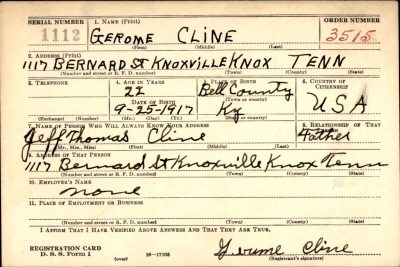 SERIAL NUMBER 1. NAME (Print) ORDER NUMBER
1112 GEROME CLINE 3515
(First) (Middle) (Last)
2. ADDRESS (Print)
1117 BERNARD ST KNOXVILLE KNOX TENN
(Number and street or R. F. D. number) (Town) (County) (State)
3. TELEPHONE 4. AGE IN YEARS 5. PLACE OF BIRTH 6. COUNTRY OF CITIZENSHIP
22 Bell County
DATE OF BIRTH (Town or county)
9-25-1917 Ky USA
(Exchange) (Number) (Mo.) (Day) (Yr.) (State or country)
7. NAME OF PERSON WHO WILL ALWAYS KNOW YOUR ADDRESS 8. RELATIONSHIP OF THAT PERSON
Jeff Thomas Cline Father
(Mr., Mrs., Miss) (First) (Middle) (Last)
9. ADDRESS OF THAT PERSON
1117 Bernard St Knoxville Knox Tenn
(Number and street or R. F. D. number) (Town) (County) (State)
10. EMPLOYER'S NAME
none
11. PLACE OF EMPLOYMENT OR BUSINESS
(Number and street or R. F. D. number) (Town) (County) (State)
I AFFIRM THAT I HAVE VERIFIED ABOVE ANSWERS AND THAT THEY ARE TRUE.
REGISTRATION CARD
D. S. S. Form 1 16—17105 Gerume Cline
(Registrant's signature)